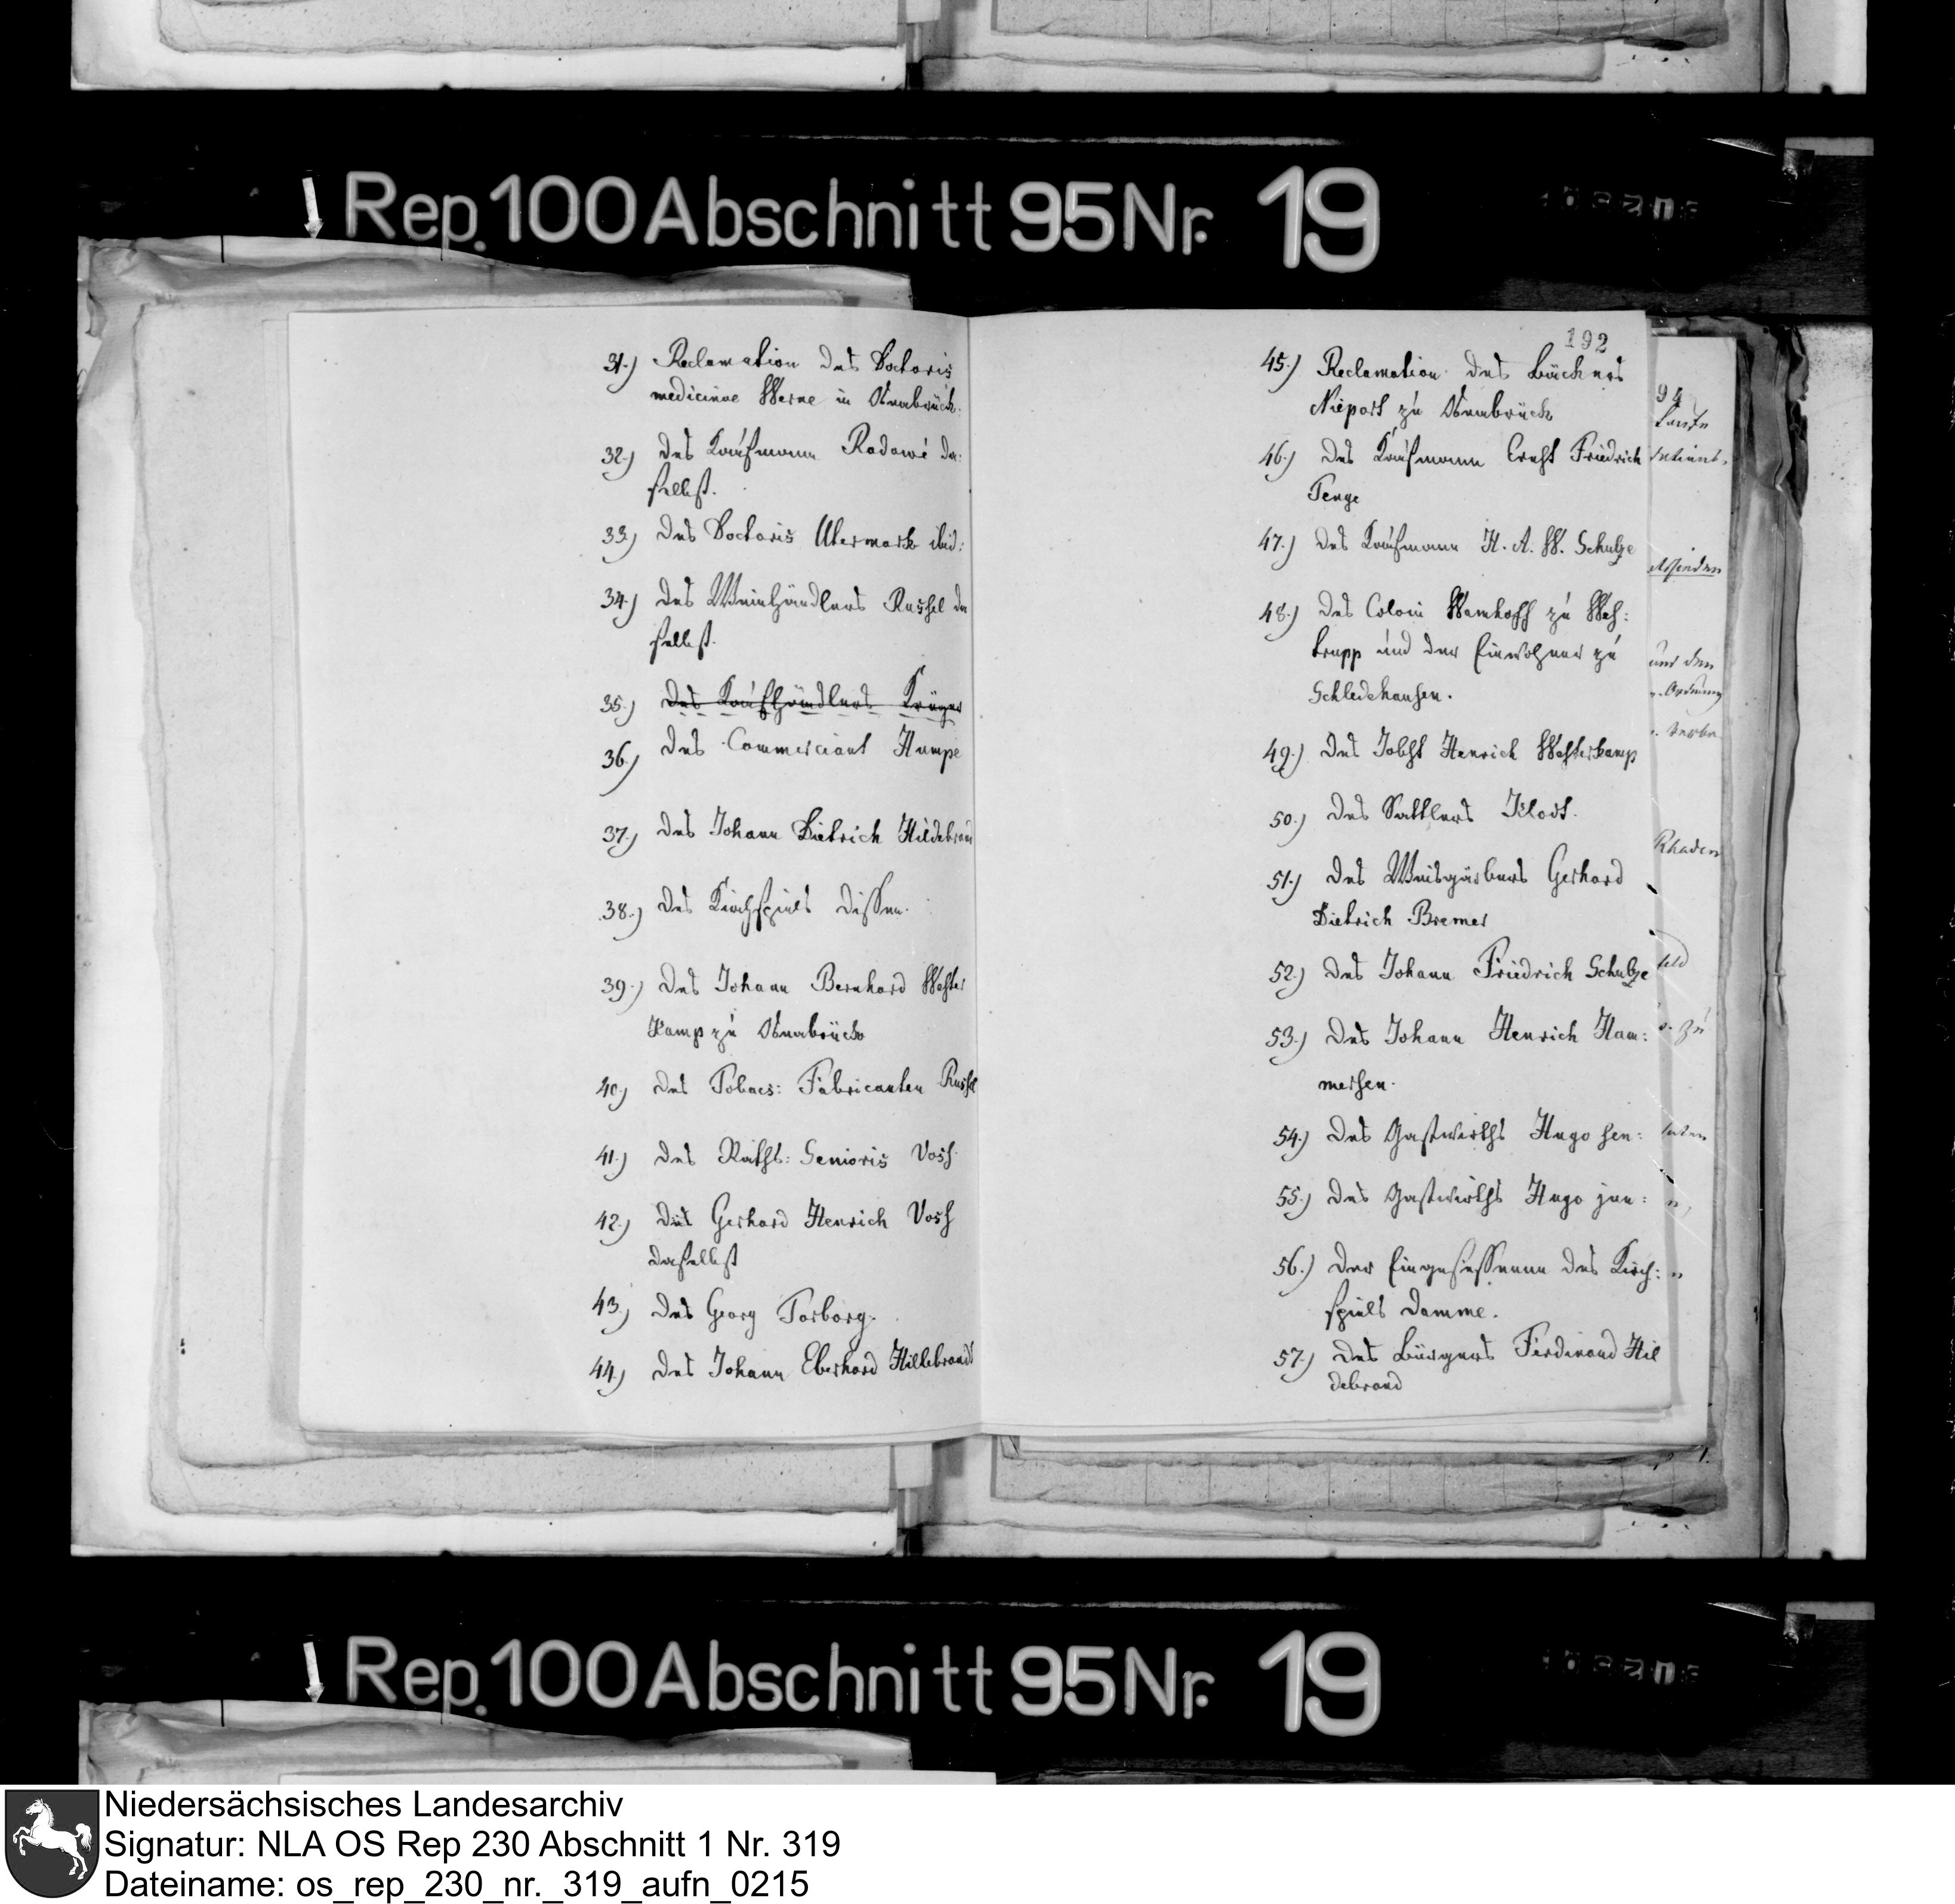 Rep. 100 Abschnitt 95 Nr. 19
31.) Reclamation des Doctoris
medicinae Werne in Osnabrück.
32.) des Kaufmann Radowé da:
selbst.
33.) des Doctoris Utermark ibid:
34.) des Weinhändlers Russel da
selbst.
35.) des Kaufhändlers Krüger
36.) des Commerciant Humpe
37.) des Johann Dietrich Hildebrand
38.) des Kirchspiels Dissen.
39.) des Johann Bernhard Wester
kamp zu Osnabrück
40.) des Tobacs: Fabricanten Russel
41.) des Raths: Senioris Voss
42.) des Gerhard Henrich Voss
daselbst
43.) des Georg Torborg.
44.) des Johann Eberhard Hillebrandt
192
45.) Reclamation des Bäckers
Nieport zu Osnabrück
46.) des Kaufmann Ernst Friedrich
Tenge
47.) des Kaufmann H. A. W. Schulze
48.) des Coloni Wamhoff zu Wes:
trupp und der Einwohner zu
Schledehausen.
49.) des Jobst Henrich Westerkamp
50.) des Sattlers Klodt.
51.) des Weisgärbers Gerhard
Dietrich Bremer
52.) des Johann Friedrich Schulze
53.) des Johann Henrich Ham:
mersen.
54.) des Gastwirths Hugo sen:
55.) des Gastwirths Hugo jun:
56.) der Eingesessenen des Kirch:
spiels Damme.
57.) des Bürgers Ferdinand Hil
debrand
94
und den
Rhaden
zu
Rep. 100 Abschnitt 95 Nr. 19
Niedersächsisches Landesarchiv
Signatur: NLA OS Rep 230 Abschnitt 1 Nr. 319
Dateiname: os_rep_230_nr._319_aufn_0215